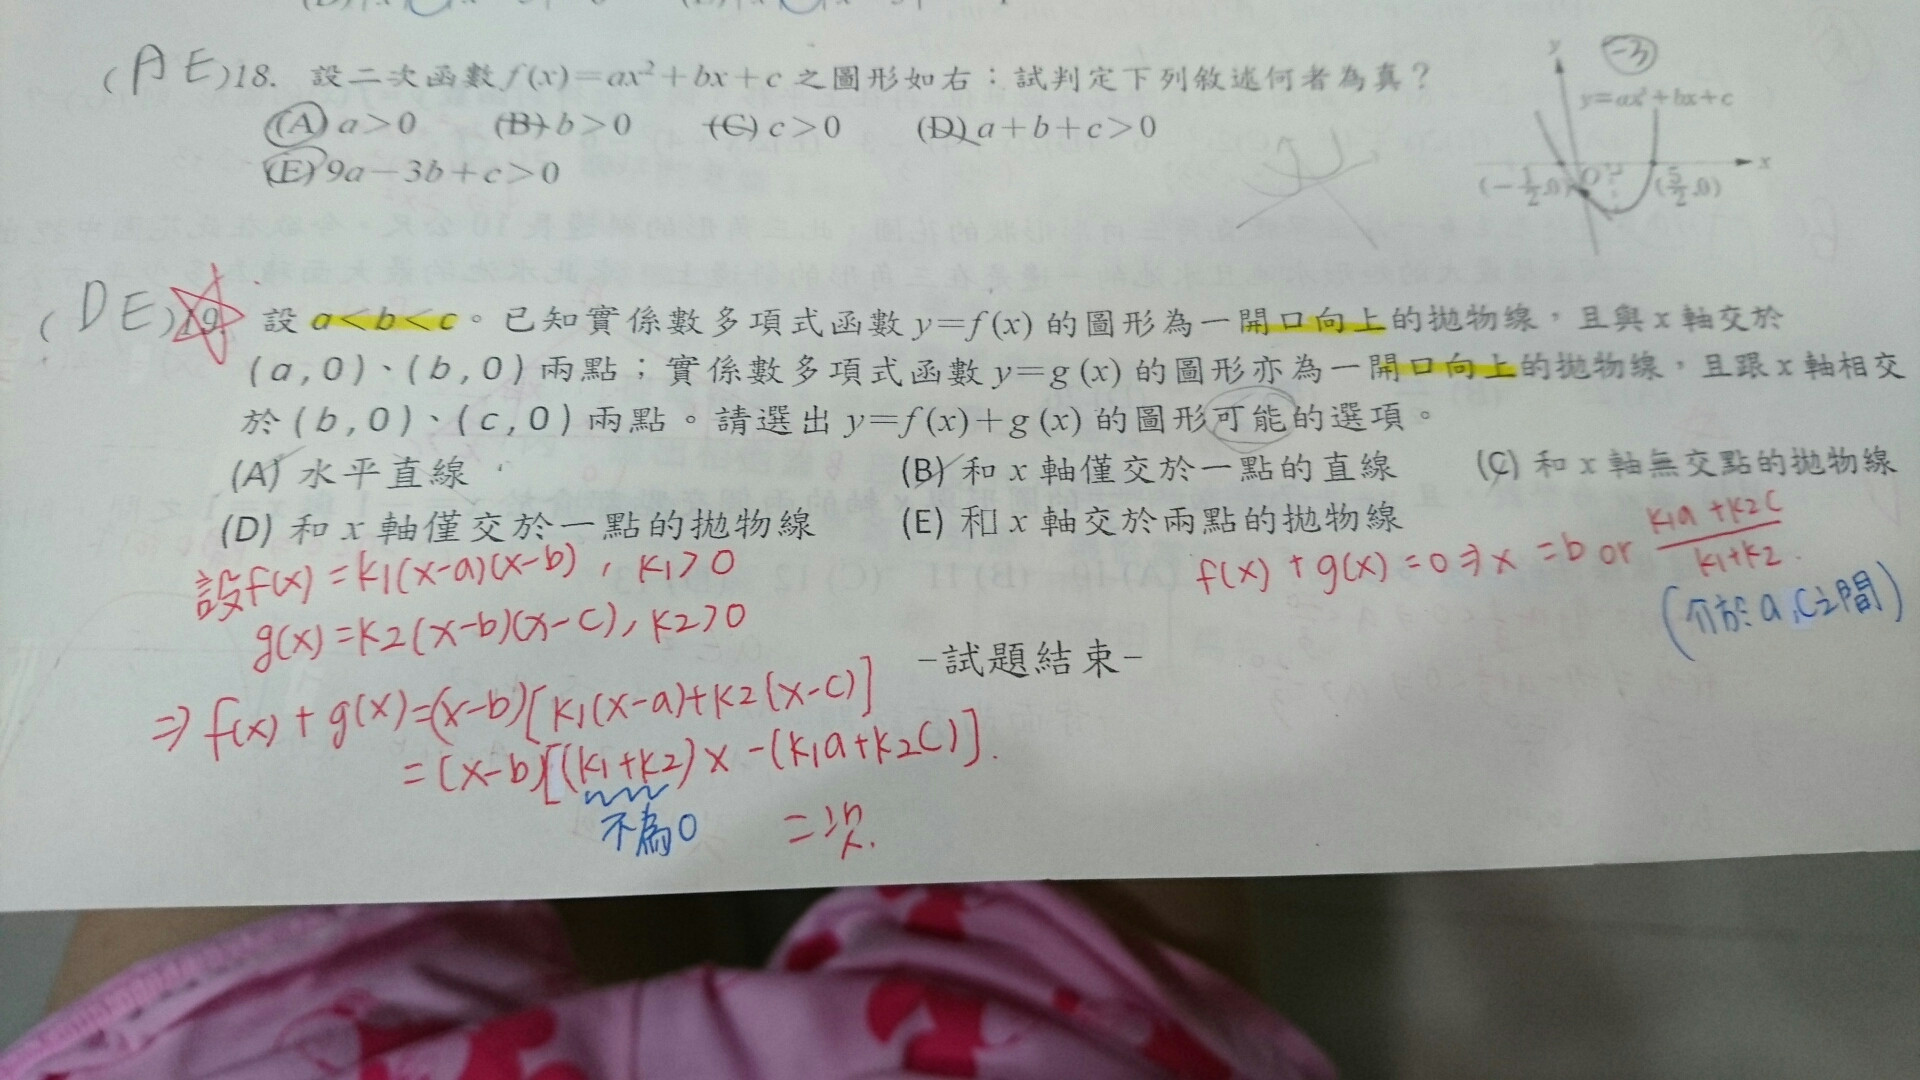 (AE)18. 設二次函數f(x)=ax²+bx+c之圖形如右:試判定下列敘述何者為真?
(A) a>0 (B) b>0 (C) c>0 (D) a+b+c>0
(E) 9a-3b+c>0
y
-3
y=ax²+bx+c
x
(-1/2,0) O (5/2,0)
(DE)19. 設 a<b<c。已知實係數多項式函數 y=f(x) 的圖形為一開口向上的拋物線,且與x軸交於
(a,0)、(b,0)兩點;實係數多項式函數 y=g(x) 的圖形亦為一開口向上的拋物線,且跟x軸相交
於(b,0)、(c,0)兩點。請選出 y=f(x)+g(x) 的圖形可能的選項。
(A) 水平直線 (B) 和x軸僅交於一點的直線 (C) 和x軸無交點的拋物線
(D) 和x軸僅交於一點的拋物線 (E) 和x軸交於兩點的拋物線
設f(x)=k1(x-a)(x-b), k1>0
g(x)=k2(x-b)(x-c), k2>0
⇒ f(x)+g(x)=(x-b)[k1(x-a)+k2(x-c)]
=(x-b)[(k1+k2)x-(k1a+k2c)].
不為0 二次.
f(x)+g(x)=0⇒x=b or (k1a+k2c)/(k1+k2).
(介於a,c之間)
-試題結束-